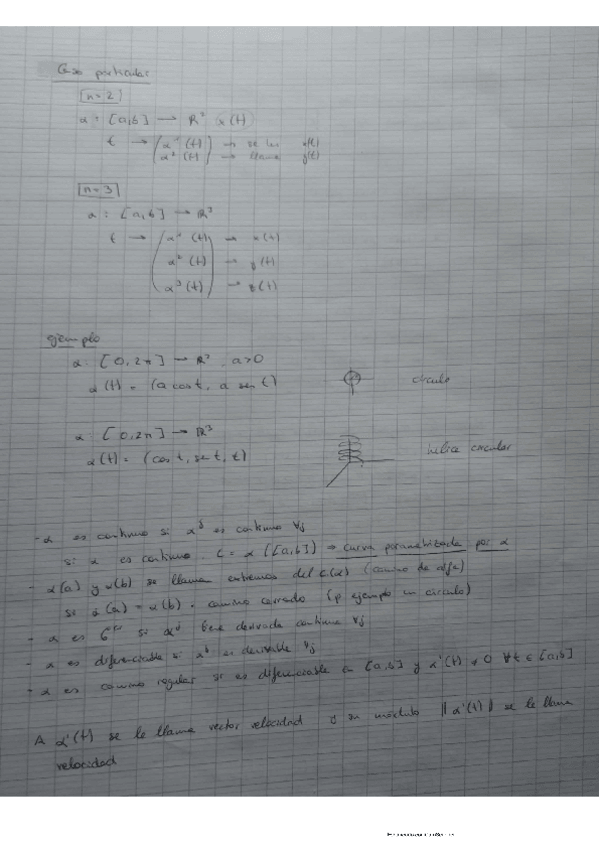 Caso particular
n=2
α: [a,b] → R² α(t)
t → (α¹(t) → se les x(t)
α²(t)) → llama y(t)
n=3
α: [a,b] → R³
t → (α¹(t) → x(t)
α²(t) → y(t)
α³(t)) → z(t)
ejemplo
α: [0,2π] → R² a>0
α(t) = (a cos t, a sen t) círculo
α: [0,2π] → R³
α(t) = (cos t, sen t, t) helice circular
- α es continuo si αʲ es continuo ∀j
si α es continuo. C = α([a,b]) → curva parametrizada por α
- α(a) y α(b) se llama extremos del C(α) (camino de alfa)
si α(a) = α(b) . camino cerrado (p ejemplo un círculo)
- α es si αʲ tiene derivada continua ∀j
- α es diferenciable si αʲ es derivable ∀j
- α es camino regular si es diferenciable en [a,b] y α'(t) ≠ 0 ∀t ∈ [a,b]
A α'(t) se le llama vector velocidad y su módulo ‖α'(t)‖ se le llama
velocidad